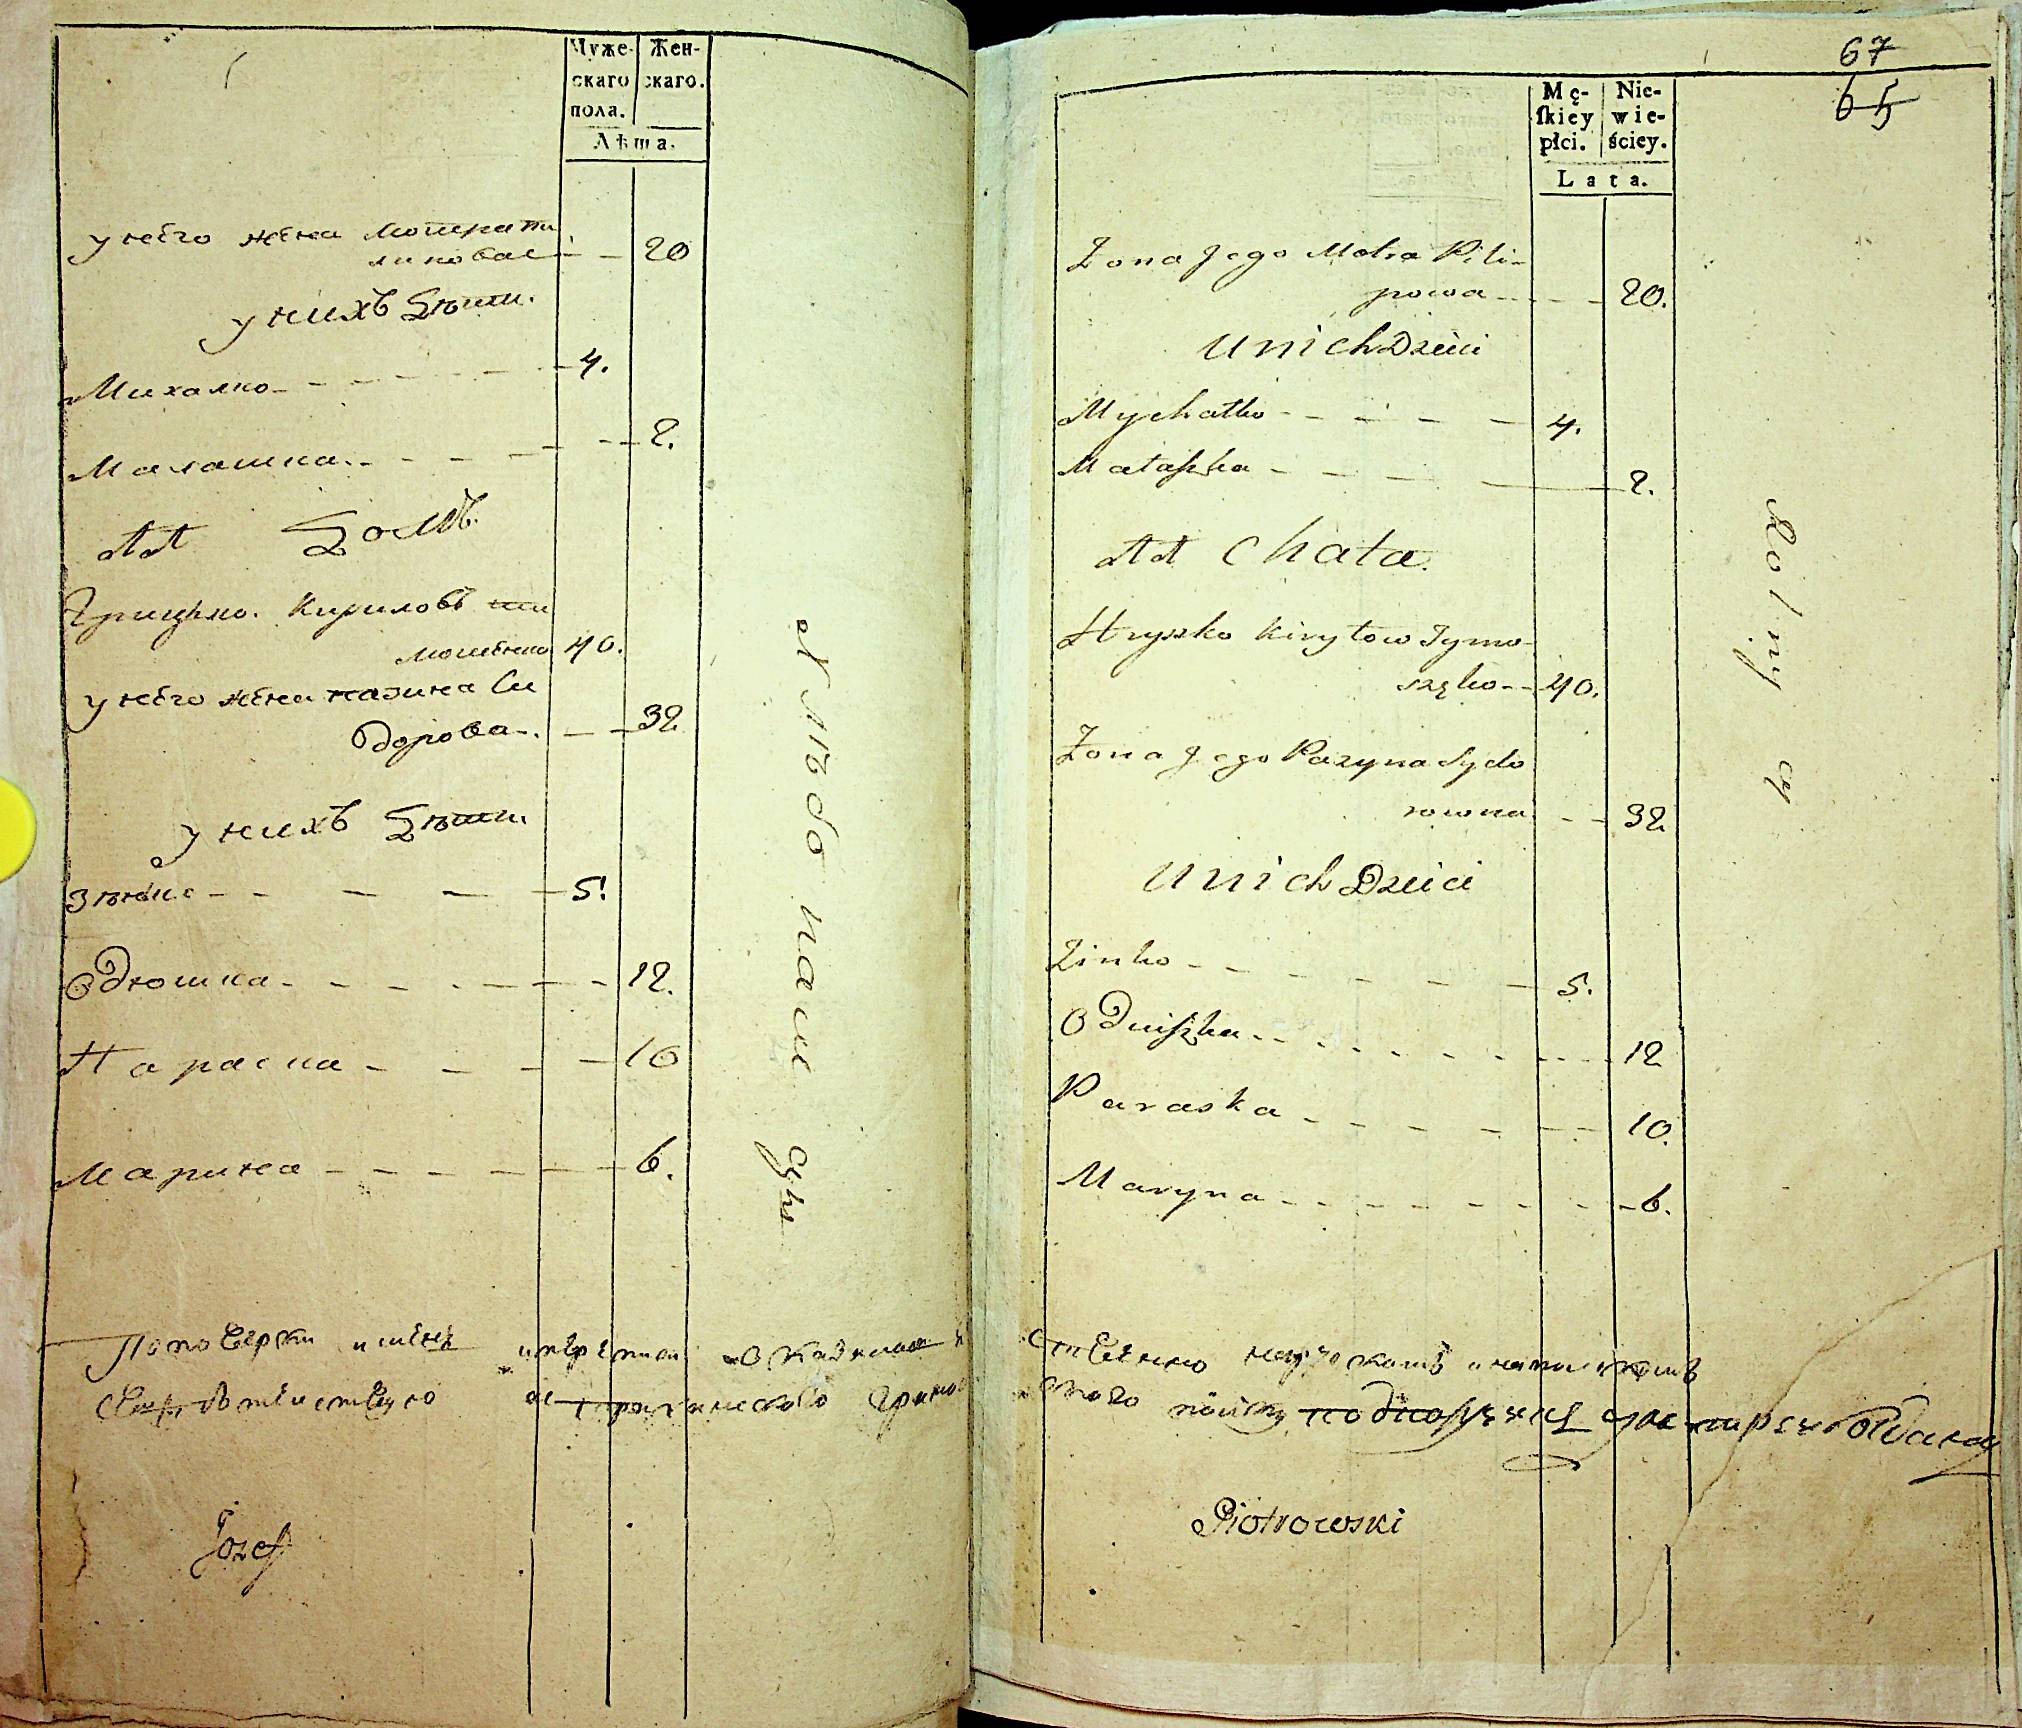 Муже-
скаго
пола.
Жен-
скаго.
Лѣта.
у него жена мотра пи
липова 20
у нихъ дѣти.
Михалко 4.
Малашка 2.
44 домъ.
Грицько Кириловъ ти
мошенко 40.
у него жена пазина Си
дорова 32
у нихъ дѣти.
Зѣнько 5.
Одюшка 12.
Параска 10
Марина 6.
Хлѣбо паш цы
Józef
67
65
Mę-
ſkiey
płci.
Nie-
wie-
ściey.
Lata.
Zona Jego Motra Pili-
powa 20.
U nich Dzieci
Mychałko 4.
Małaszka 2.
44 Chata.
Hryszko Kiryłow Tymo-
szęko 40.
Zona Jego Pazyna Sydo
rowna 32
U nich Dzieci
Zinko 5.
Oduiszka 12
Paraska 10.
Maryna 6.
Rolny cy
Piotrowski